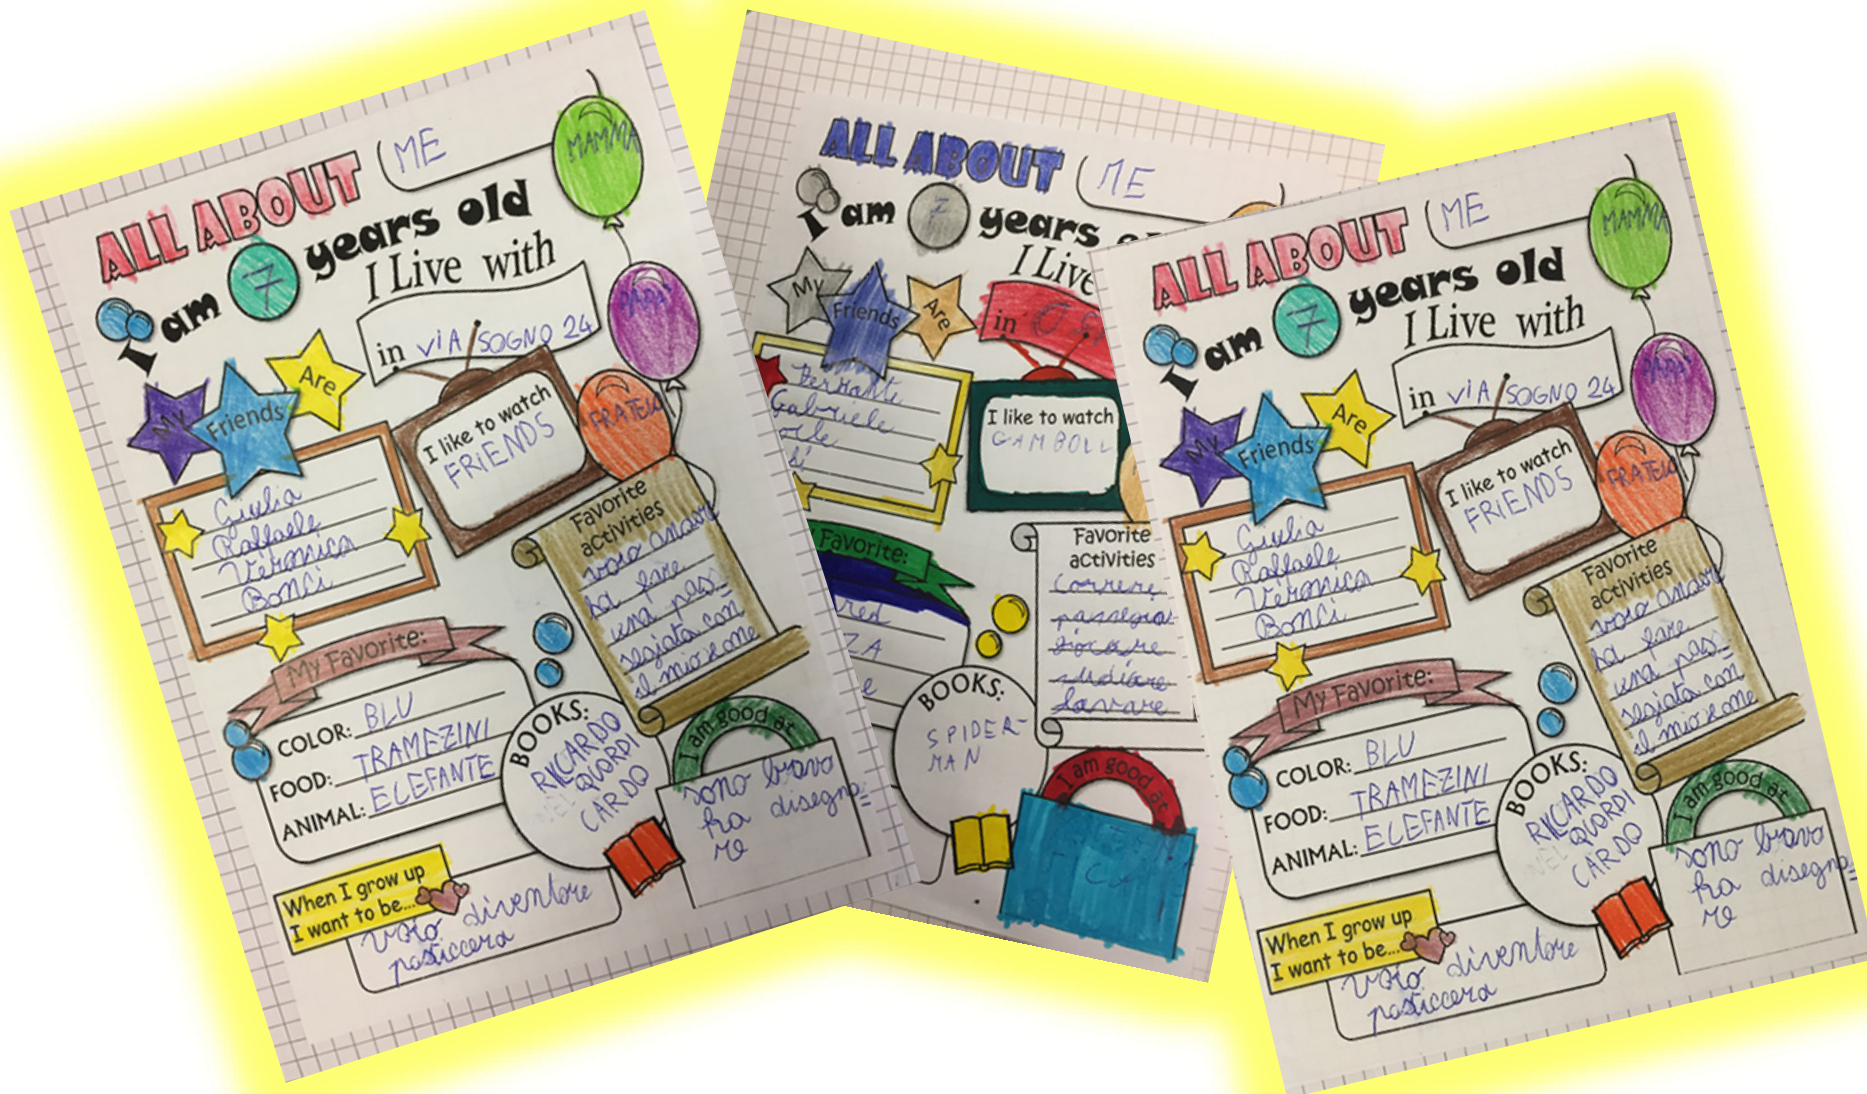 ALL ABOUT ME
I am 7 years old
I Live with
MAMMA
PAPA'
FRATELLO
in VIA SOGNO 24
My Friends Are
Giulia
Raffaele
Veronica
Bonci
I like to watch
FRIENDS
Favorite
activities
una pas=
segiata con
il mio
My Favorite:
COLOR: BLU
FOOD: TRAMEZINI
ANIMAL: ELEFANTE
BOOKS:
RICCARDO
CARDO
I am good at
sono brava
ha disegna=
re
When I grow up
I want to be...
diventore
pasticcera
ALL ABOUT ME
I am 7 years
I Live
in
My Friends Are
Gabriele
I like to watch
GAMBOLL
Favorite:
red
ZA
e
Favorite
activities
correre
giocare
lavare
BOOKS:
SPIDER-
MAN
I am good at
ALL ABOUT ME
I am 7 years old
I Live with
MAMMA
PAPA'
FRATELLO
in VIA SOGNO 24
My Friends Are
Giulia
Raffaele
Veronica
Bonci
I like to watch
FRIENDS
Favorite
activities
una pas=
segiata con
il mio
My Favorite:
COLOR: BLU
FOOD: TRAMEZINI
ANIMAL: ELEFANTE
BOOKS:
RICCARDO
CARDO
I am good at
sono brava
ha disegna=
re
When I grow up
I want to be...
diventore
pasticcera